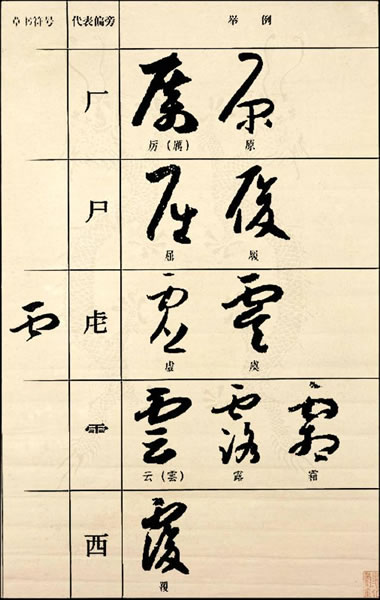 草书符号 代表偏旁 举例
厂 厉(厲) 原
尸 屈
虍 虚 虞
⻗ 云(雲) 露 霜
西 覆